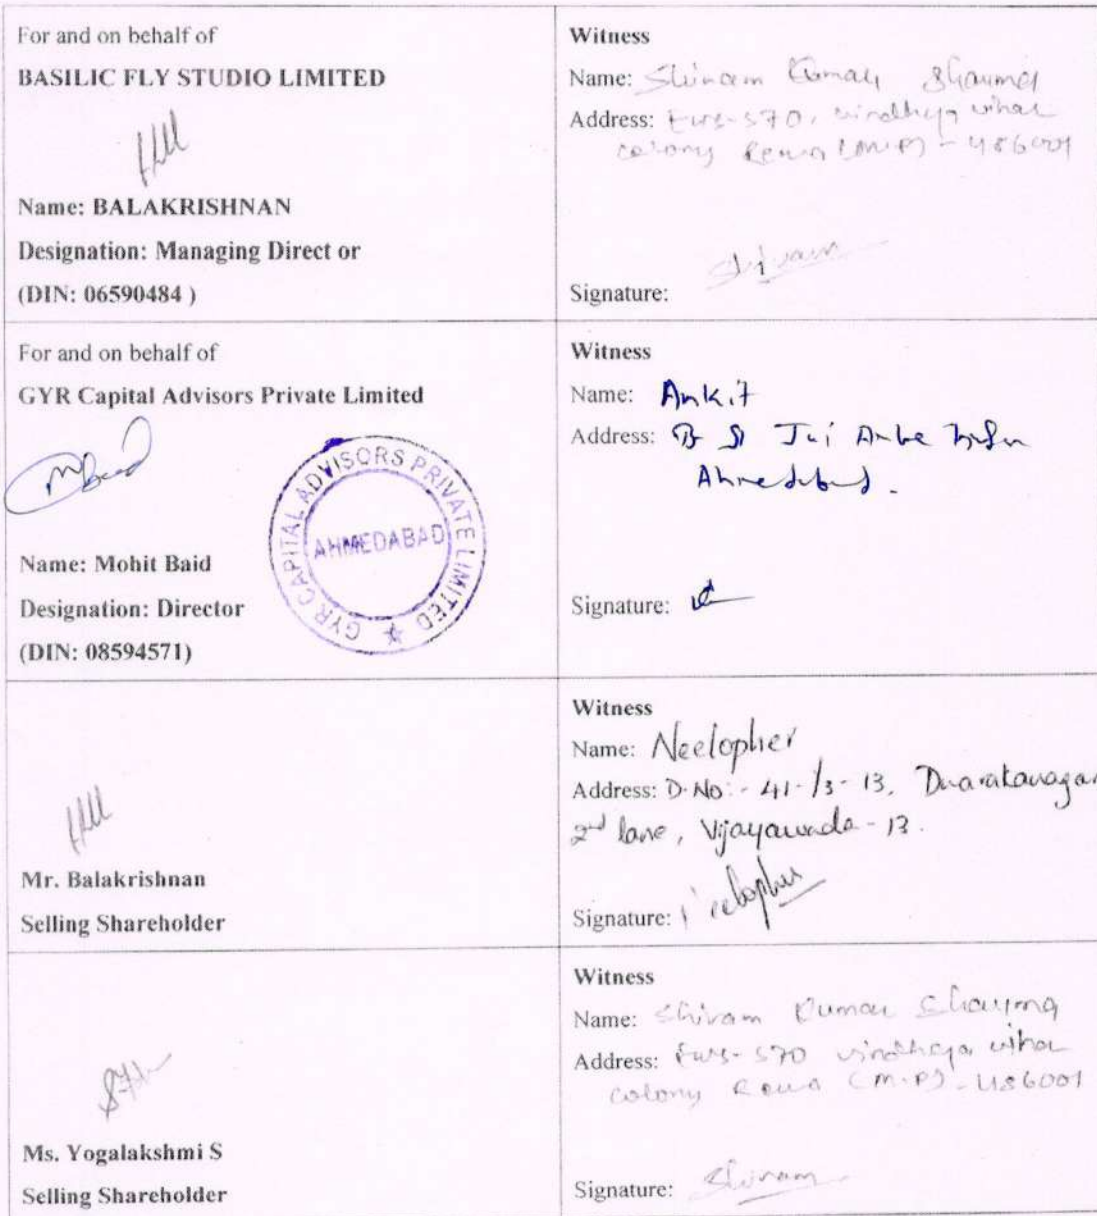 For and on behalf of
BASILIC FLY STUDIO LIMITED
Name: BALAKRISHNAN
Designation: Managing Direct or
(DIN: 06590484 )
Witness
Name: Shivam Kumar Sharma
Address: EWS-570, vindhya vihar
colony Rewa (M.P) - 486001
Shivam
Signature:
For and on behalf of
GYR Capital Advisors Private Limited
MBaid
GYR CAPITAL ADVISORS PRIVATE LIMITED
AHMEDABAD
Name: Mohit Baid
Designation: Director
(DIN: 08594571)
Witness
Name: Ankit
Address: Jai Ambe
Ahmedabad.
Signature:
Mr. Balakrishnan
Selling Shareholder
Witness
Name: Neelopher
Address: D.No:- 41-1/3-13, Dwarakanagar
2nd lane, Vijayawada - 13.
Signature: Neelopher
Ms. Yogalakshmi S
Selling Shareholder
Witness
Name: Shivam Kumar Sharma
Address: EWS-570 vindhya vihar
colony Rewa (M.P) - 486001
Signature: Shivam